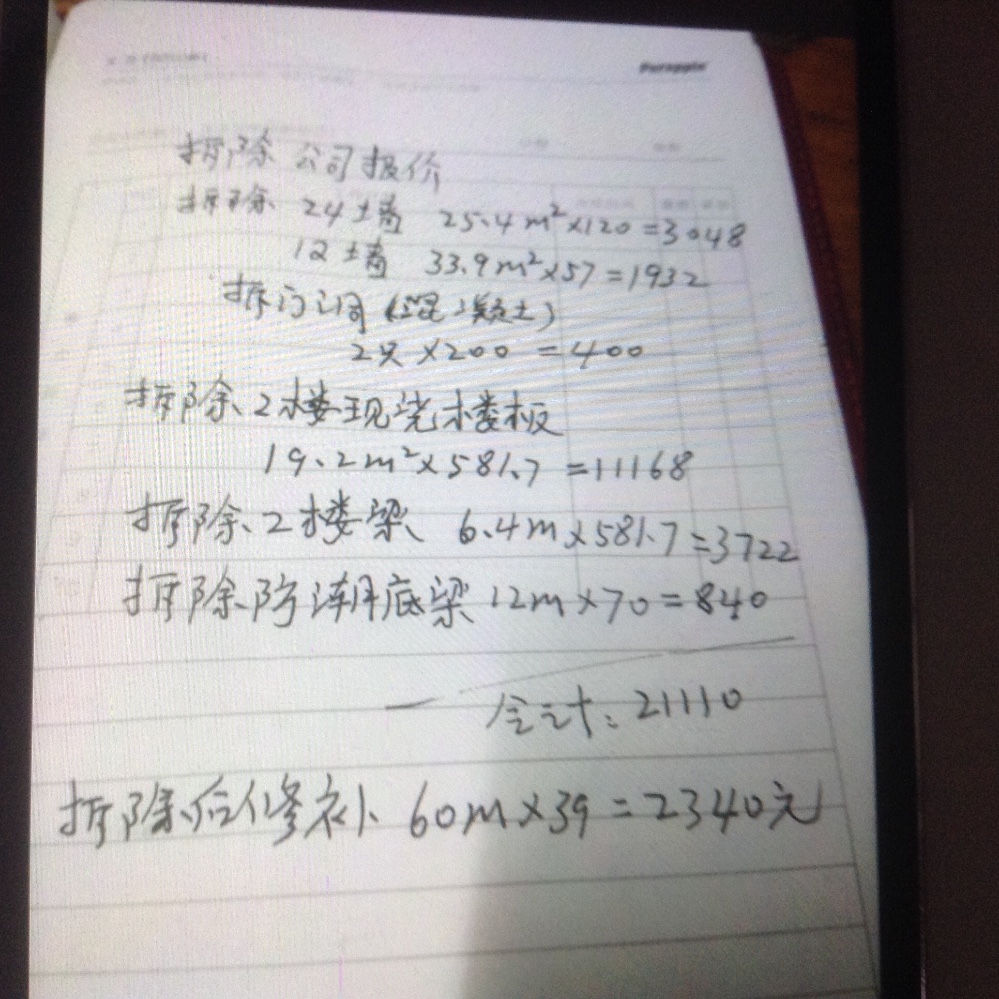 拆除公司报价
拆除 24墙 25.4m²×120=3048
12墙 33.9m²×57=1932
拆门洞(混凝土)
2只×200=400
拆除2楼现浇楼板
19.2m²×581.7=11168
拆除2楼梁 6.4m×581.7=3722
拆除防潮底梁 12m×70=840
合计:21110
拆除后修补 60m×39=2340元